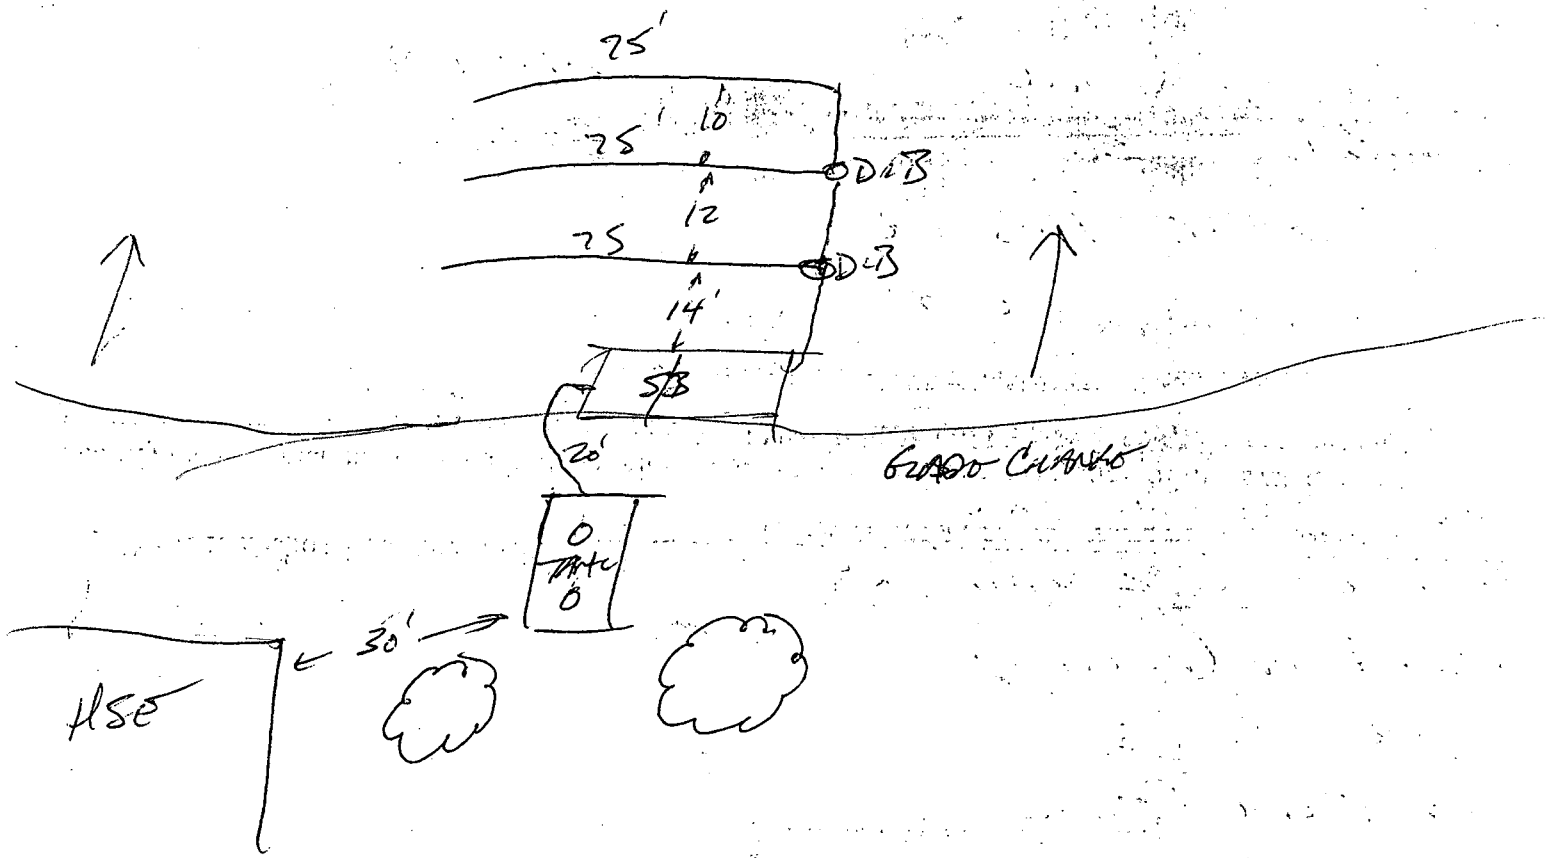 75'
10'
75'
D-B
12
75
D-B
14'
SB
20'
GRADE CHANGE
O
TANK
O
30'
HSE